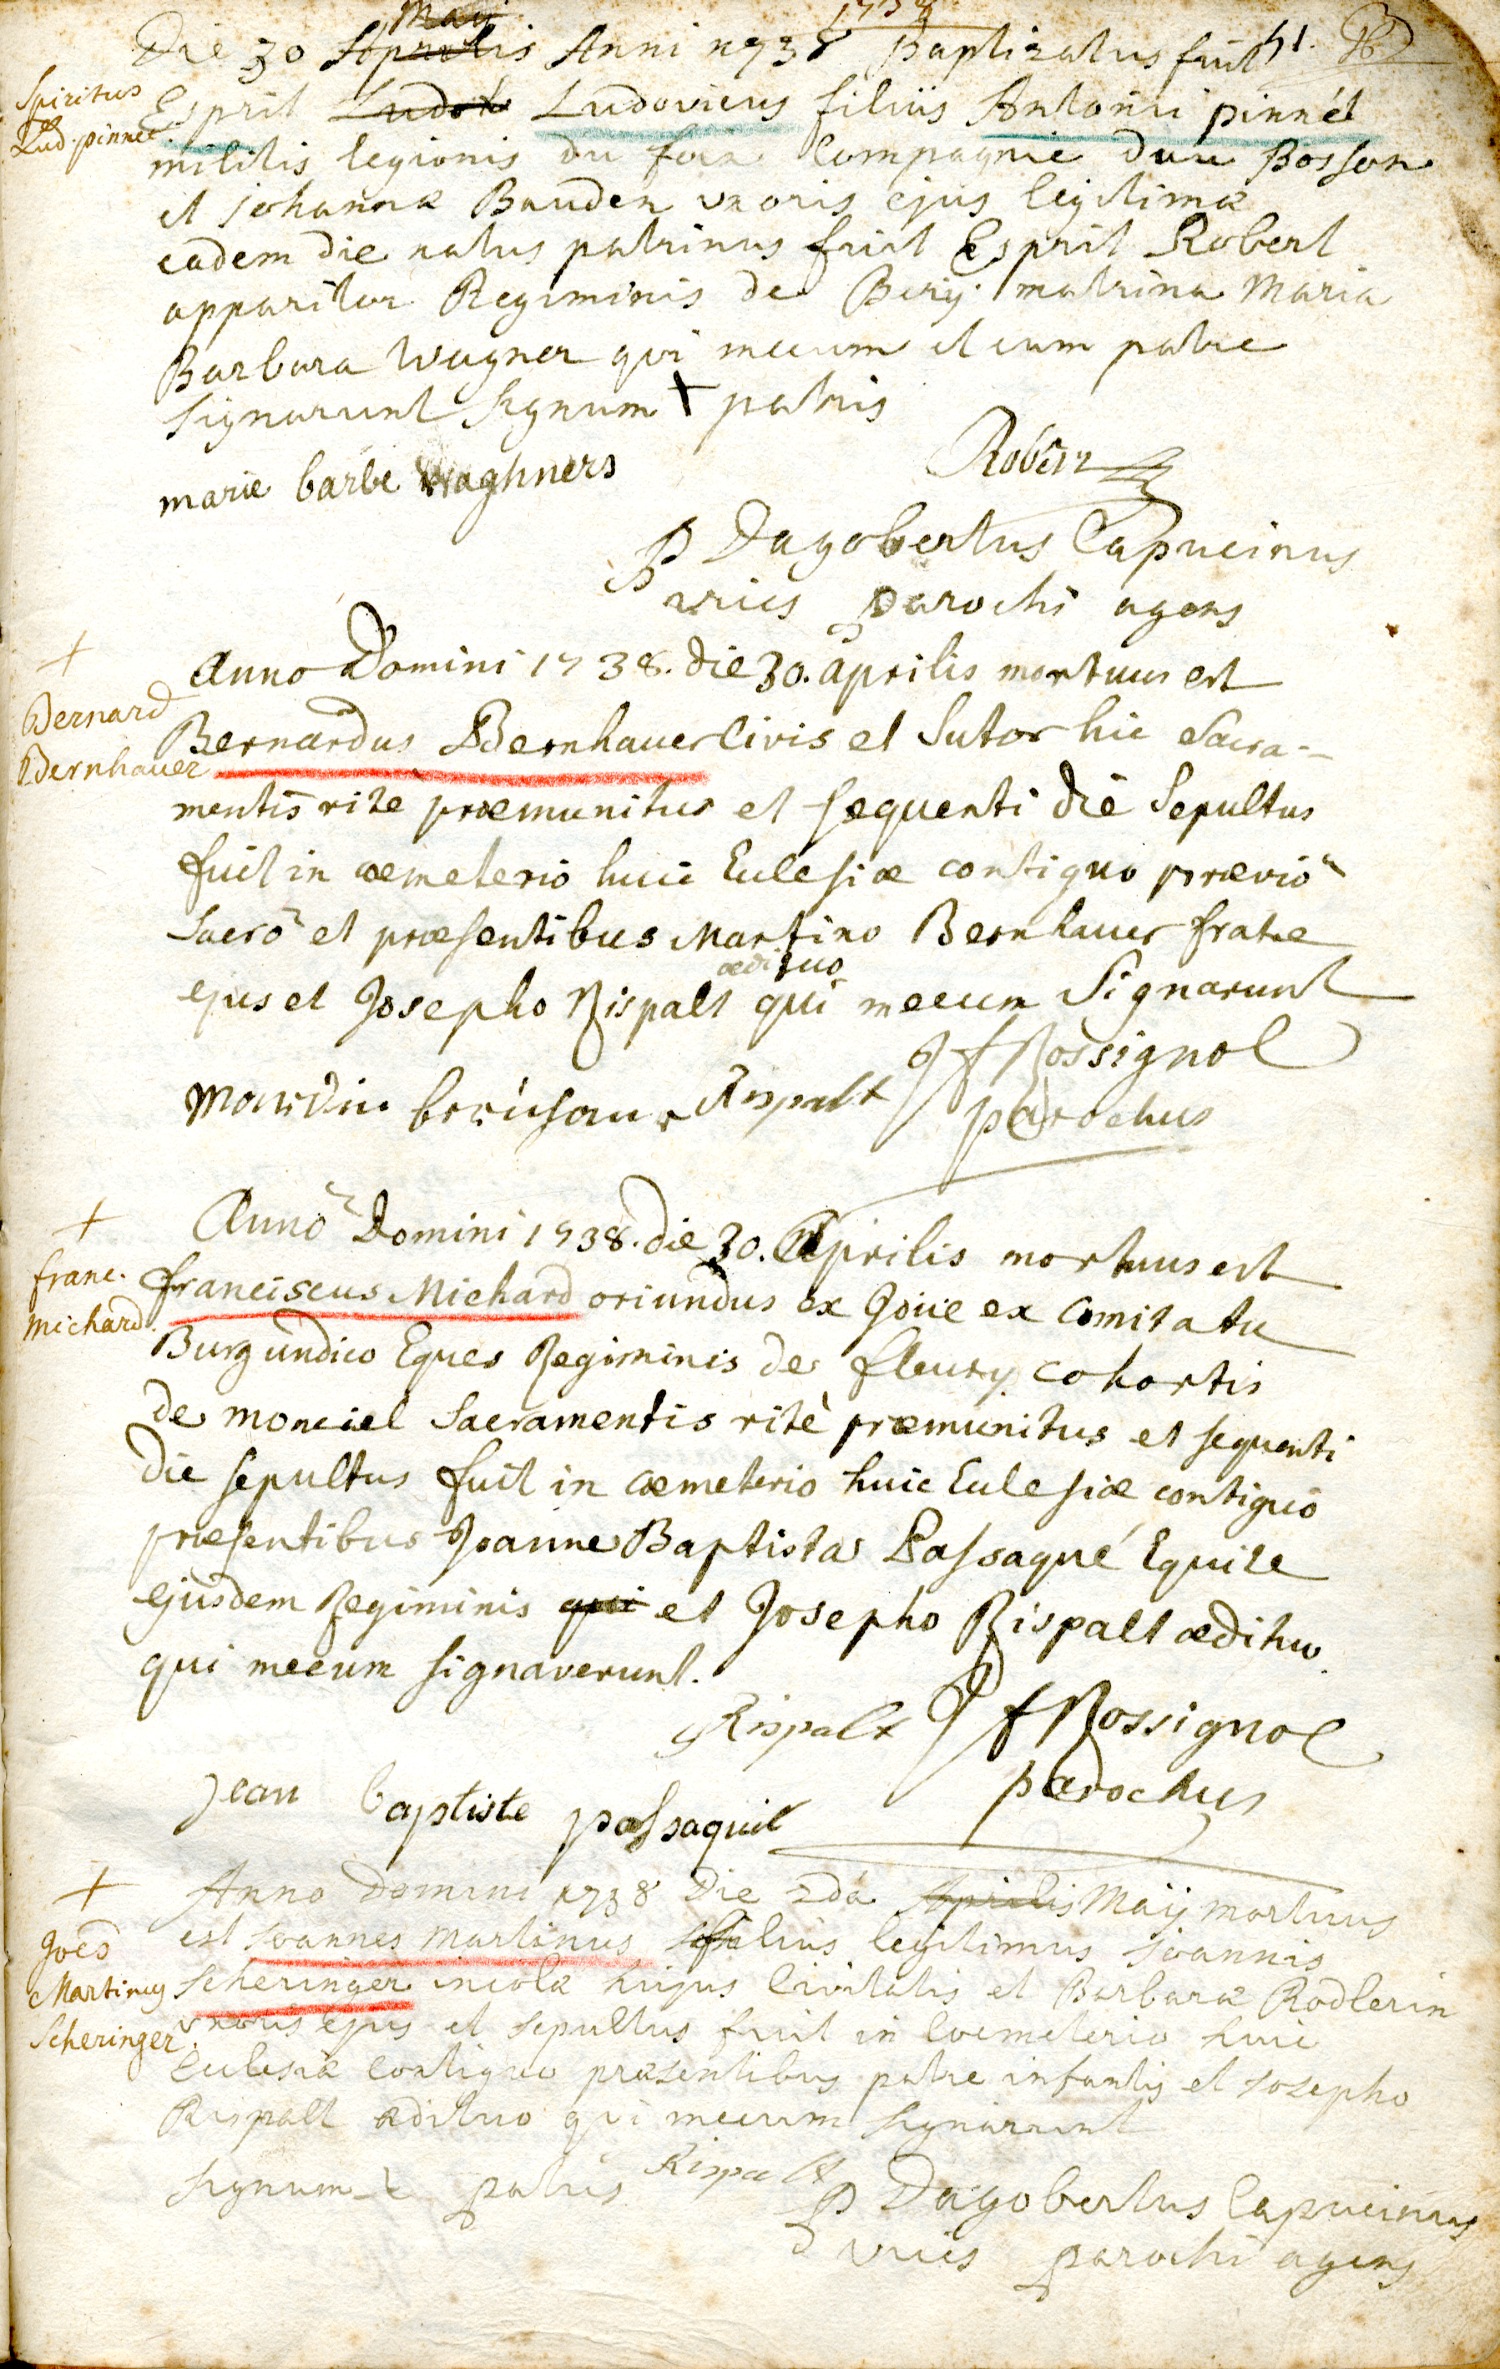 1738
Maij
Die 30 Aprilis Anni 1738 baptizatus fuit 51.
Spiritus
Lud. pinnet
Esprit Ludov Ludovicus filius Antonii pinnet
militis legionis du foix Compagnie duu Bosson
et johannæ Bauden uxoris ejus legitimæ
eadem die natus patrinus fuit Esprit Robert
apparitor Regiminis de Bery matrina Maria
Barbara Wagner qui mecum et cum patre
signarunt signum + patris
marie barbe waghners
Robert
P Dagobertus Capucinus
vices parochi agens
+
Bernard
Bernhauer
Anno Domini 1738. die 30. aprilis mortuus est
Bernardus Bernhauer Civis et Sutor hic Sacra-
mentis rite præmunitus et sequenti die Sepultus
fuit in cæmeterio huic Ecclesiæ contiguo prævio
Sacro et præsentibus Martino Bernhauer fratre
ædituo
ejus et Josepho Rispalt qui mecum Signarunt
J f Rossignol
parochus
Rispalt
+
franc.
Michard.
Anno Domini 1738. die 30. Aprilis mortuus est
franciscus Michard oriundus ex Goue ex Comitatu
Burgundico Eques Regiminis de fleury cohortis
de monciel Sacramentis ritè præmunitus et sequenti
die sepultus fuit in cæmeterio huic Eclesiæ contiguo
præsentibus Joanne Baptista Passaqué Equite
ejusdem Regiminis qui et Josepho Rispalt ædituo
qui mecum signaverunt.
Rispalt
J f Rossignol
parochus
jean baptiste passaquit
+
Joës
Martinus
Scheringer
Anno Domini 1738 Die 2da Aprilis Maij mortuus
est Joannes Martinus filius legitimus Joannis
Scheringer incolæ hujus Civitatis et Barbaræ Rodlerin
uxoris ejus et sepultus fuit in Coemeterio huic
Eclesiæ contiguo præsentibus patre infantis et Josepho
Rispalt ædituo qui mecum signarunt
signum + patris Rispalt
P Dagobertus Capucinus
vices parochi agens